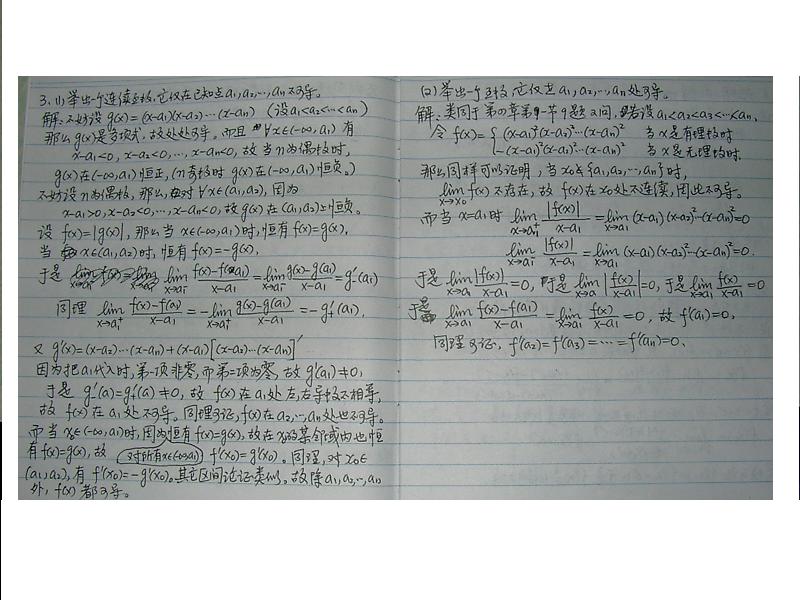 3.(1)举出一个连续函数,它仅在已知点a₁,a₂,…,aₙ不可导。
解:不妨设 g(x)=(x-a₁)(x-a₂)…(x-aₙ) (设a₁<a₂<…<aₙ)
那么g(x)是多项式,故处处可导。而且 ∀x∈(-∞,a₁) 有
x-a₁<0, x-a₂<0, …, x-aₙ<0, 故当n为偶数时,
g(x)在(-∞,a₁)恒正,(n奇数时g(x)在(-∞,a₁)恒负。)
不妨设n为偶数,那么对∀x∈(a₁,a₂),因为
x-a₁>0, x-a₂<0, …, x-aₙ<0, 故g(x)在(a₁,a₂)上恒负。
设 f(x)=|g(x)|, 那么当x∈(-∞,a₁)时,恒有f(x)=g(x),
当 x∈(a₁,a₂)时,恒有f(x)=-g(x),
于是 lim x→a₁⁻ (f(x)-f(a₁))/(x-a₁) = lim x→a₁⁻ (g(x)-g(a₁))/(x-a₁) = g'₋(a₁)
同理 lim x→a₁⁺ (f(x)-f(a₁))/(x-a₁) = -lim x→a₁⁺ (g(x)-g(a₁))/(x-a₁) = -g'₊(a₁),
又 g'(x)=(x-a₂)…(x-aₙ)+(x-a₁)[(x-a₂)…(x-aₙ)]'
因为把a₁代入时,第一项非零,而第二项为零,故 g'(a₁)≠0,
于是 g'₋(a)=g'₊(a)≠0, 故 f(x)在a₁处左,右导数不相等,
故 f(x)在a₁处不可导。同理可证,f(x)在a₂,…,aₙ处也不可导。
而当x₀∈(-∞,a₁)时,因为恒有f(x)=g(x),故在x₀的某邻域内也恒
有f(x)=g(x),故 对所有x∈(-∞,a₁) f'(x₀)=g'(x₀)。同理,对x₀∈
(a₁,a₂),有 f'(x₀)=-g'(x₀)。其它区间论证类似。故除a₁,a₂,…,aₙ
外,f(x)都可导。
(2)举出一个函数,它仅在a₁,a₂,…,aₙ处可导。
解:类同于第四章第一节9题2问,设a₁<a₂<a₃<…<aₙ,
令 f(x)={ (x-a₁)²(x-a₂)²…(x-aₙ)² 当x是有理数时
-(x-a₁)²(x-a₂)²…(x-aₙ)² 当x是无理数时.
那么同样可以证明,当x₀∉{a₁,a₂,…,aₙ}时,
lim x→x₀ f(x)不存在,故 f(x)在x₀处不连续,因此不可导。
而当x=a₁时 lim x→a₁⁺ |f(x)|/(x-a₁) = lim x→a₁ (x-a₁)(x-a₂)²…(x-aₙ)²=0
lim x→a₁⁻ |f(x)|/(x-a₁) = lim x→a₁ (x-a₁)(x-a₂)²…(x-aₙ)²=0.
于是 lim x→a₁ |f(x)|/(x-a₁)=0, 于是 lim x→a₁ |f(x)/(x-a₁)|=0, 于是 lim x→a₁ f(x)/(x-a₁)=0
于是 lim x→a₁ (f(x)-f(a₁))/(x-a₁) = lim x→a₁ f(x)/(x-a₁) = 0, 故 f'(a₁)=0,
同理可证,f'(a₂)=f'(a₃)=…=f'(aₙ)=0.